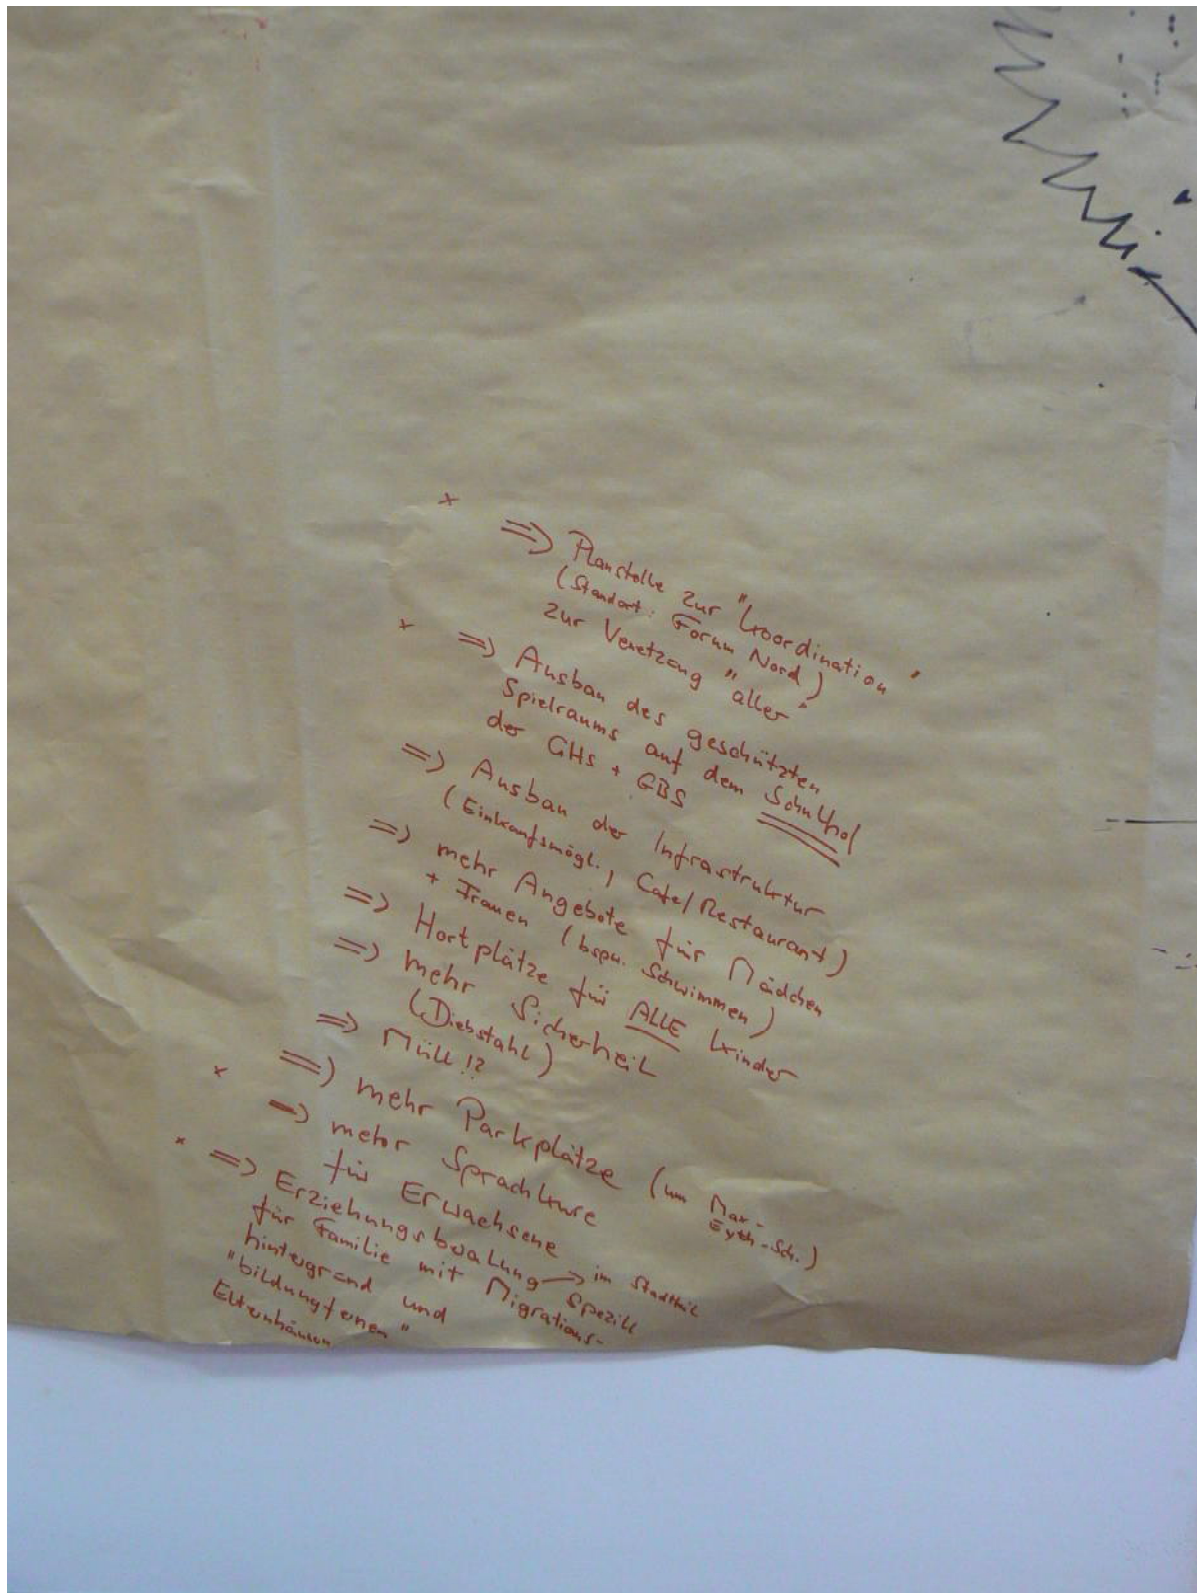 x ⇒ Planstelle zur "Koordination"
(Standort: Forum Nord)
zur Venetzung "aller"
x ⇒ Ausbau des geschützten
Spielraums auf dem Schulhof
der GHS + GBS
⇒ Ausbau der Infrastruktur
(Einkaufsmögl., Cafe/Restaurant)
⇒ mehr Angebote für Mädchen
+ Frauen (bspw. Schwimmen)
⇒ Hortplätze für ALLE Kinder
⇒ mehr Sicherheit
(Diebstahl)
⇒ Müll!?
x ⇒ mehr Parkplätze (um Max-
Eyth-Sch.)
⇒ mehr Sprachkurse
für Erwachsene
x ⇒ Erziehungsberatung → im Stadtteil
für Familie mit Migrations- speziell
hintergrund und
"bildungfernen"
Elternhäusern